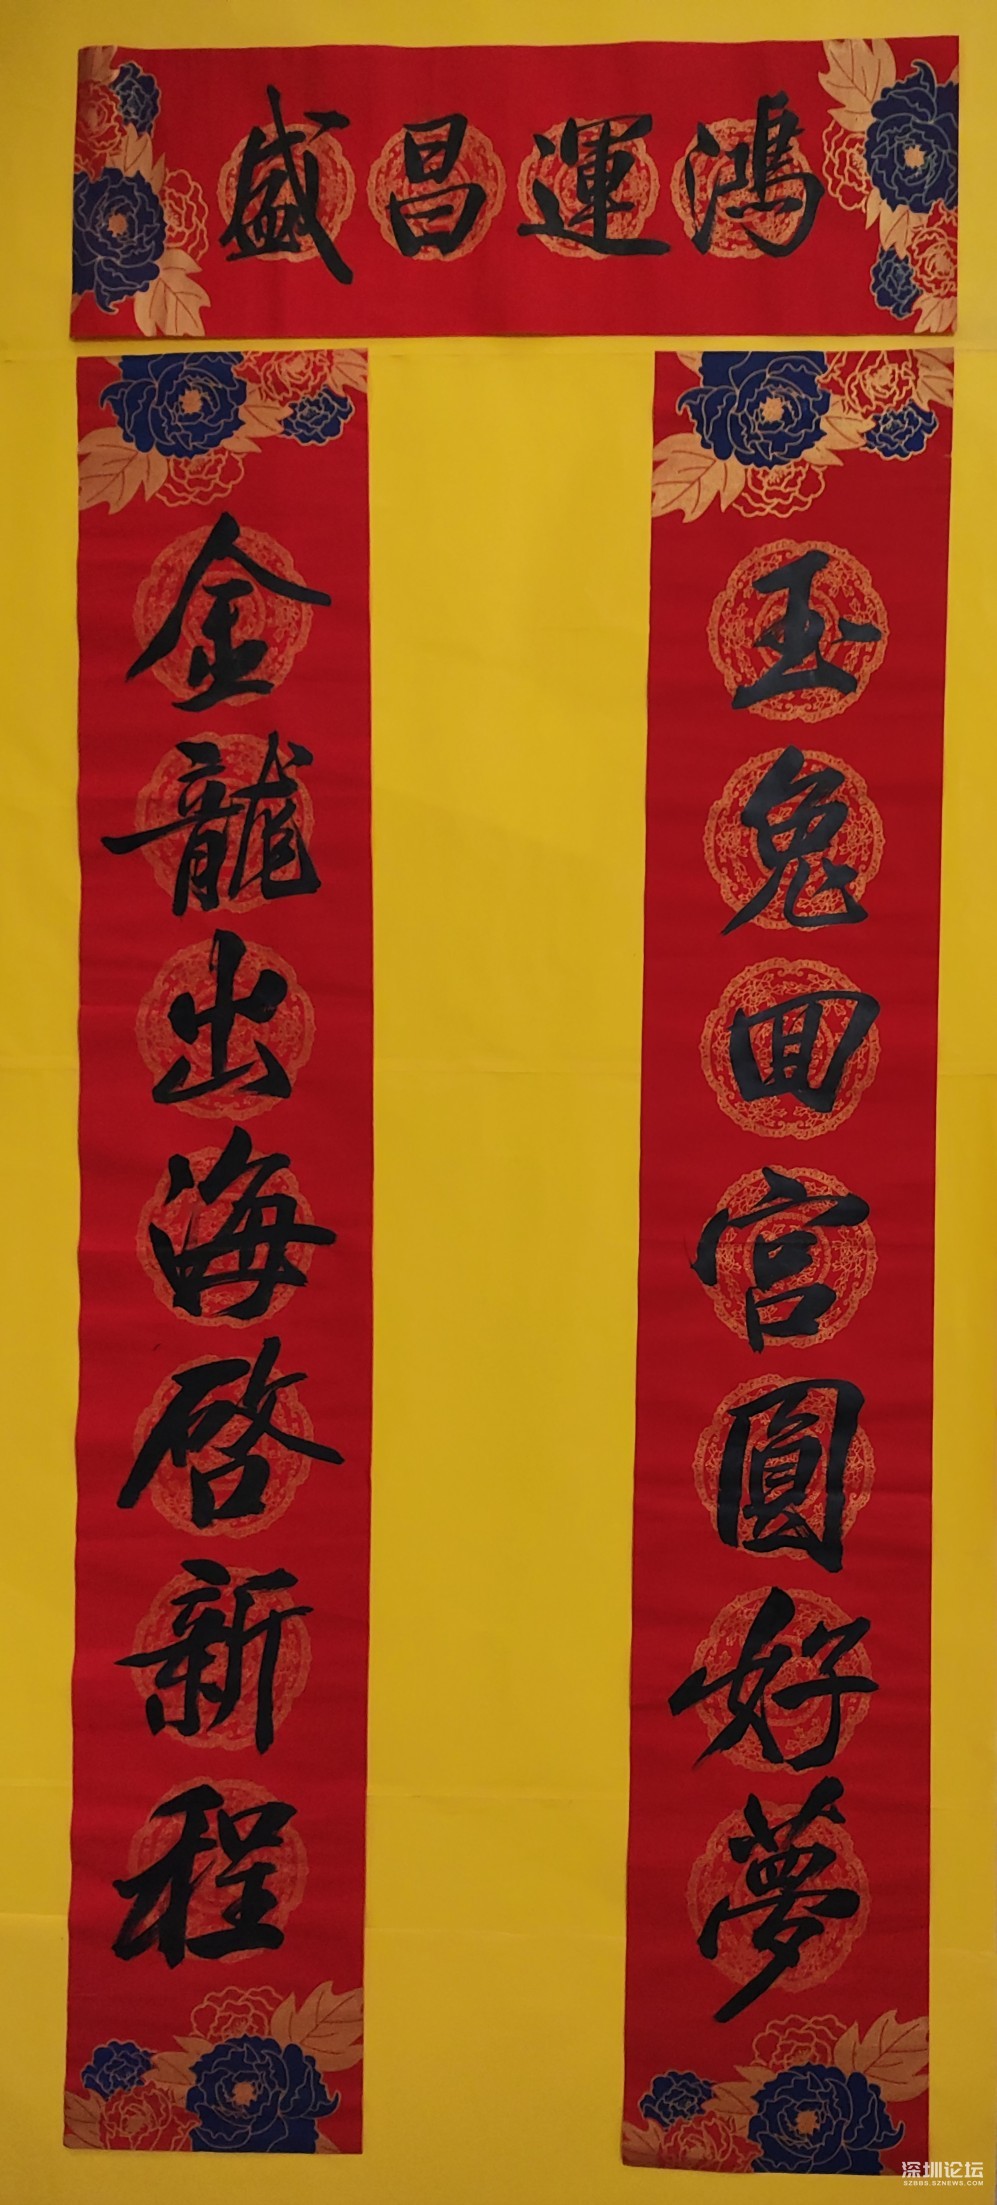 鴻運昌盛
玉兔回宮圓好夢
金龍出海啓新程
深圳论坛
SZBBS.SZNEWS.COM